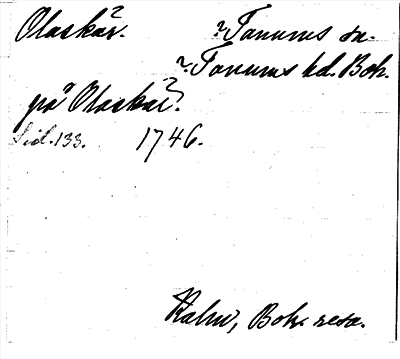 Olaskär. ? Tanums sn.
? Tanums hd. Boh.
på Olaskär.
Sid. 133. 1746.
Kalm, Bohr resa.